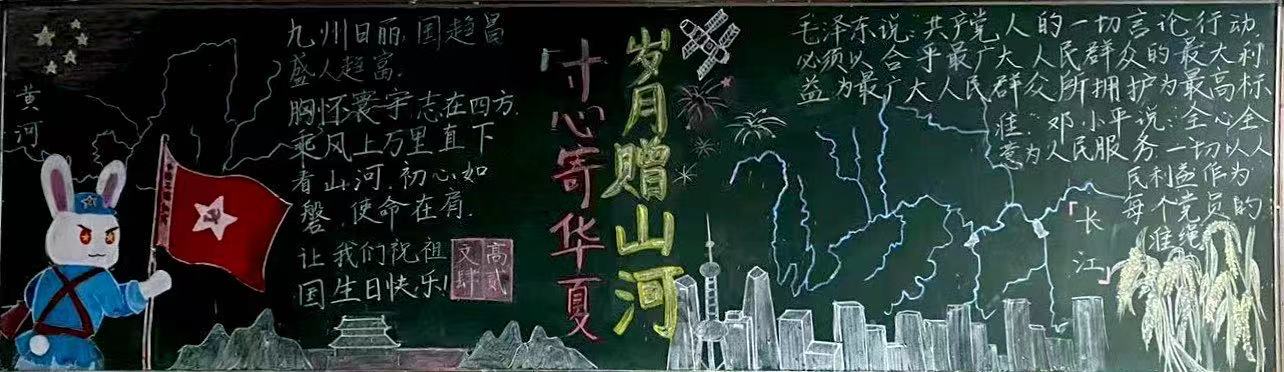 黄河
九州日丽,国趋昌
盛人趋富.
胸怀寰宇,志在四方.
乘风上万里,直下
看山河.初心如
磐,使命在肩.
让我们祝祖
国生日快乐!
高贰
文肆
「寸心寄华夏
岁月赠山河
毛泽东说:共产党人的一切言论行动,
必须以合乎最广大人民群众的最大利
益,为最广大人民群众所拥护为最高标
准.邓小平说:全心全
意为人民服务,一切以人
民利益作为
每个党员的
准绳
「长江」